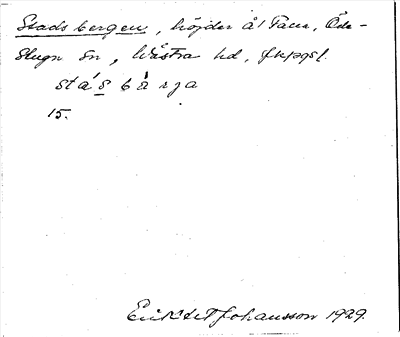 Stadsbergen, höjder å! Tåne, Öde-
slugn sn, Västra hd, Jkpgsl.
stásbårja
15.
Erik det Johansson 1929.